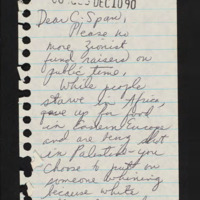 DEC 10 90
Dear C-Span,
Please no
more zionist
fund raisers on
public time,
While people
starve in Africa,
up for food
in Eastern Europe
and are being
in Palestine - you
choose to put on
someone whining
because white